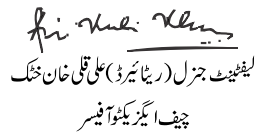 لیفٹیننٹ جنرل (ریٹائیرڈ) علی قلی خان خٹک
چیف ایگزیکٹو آفیسر